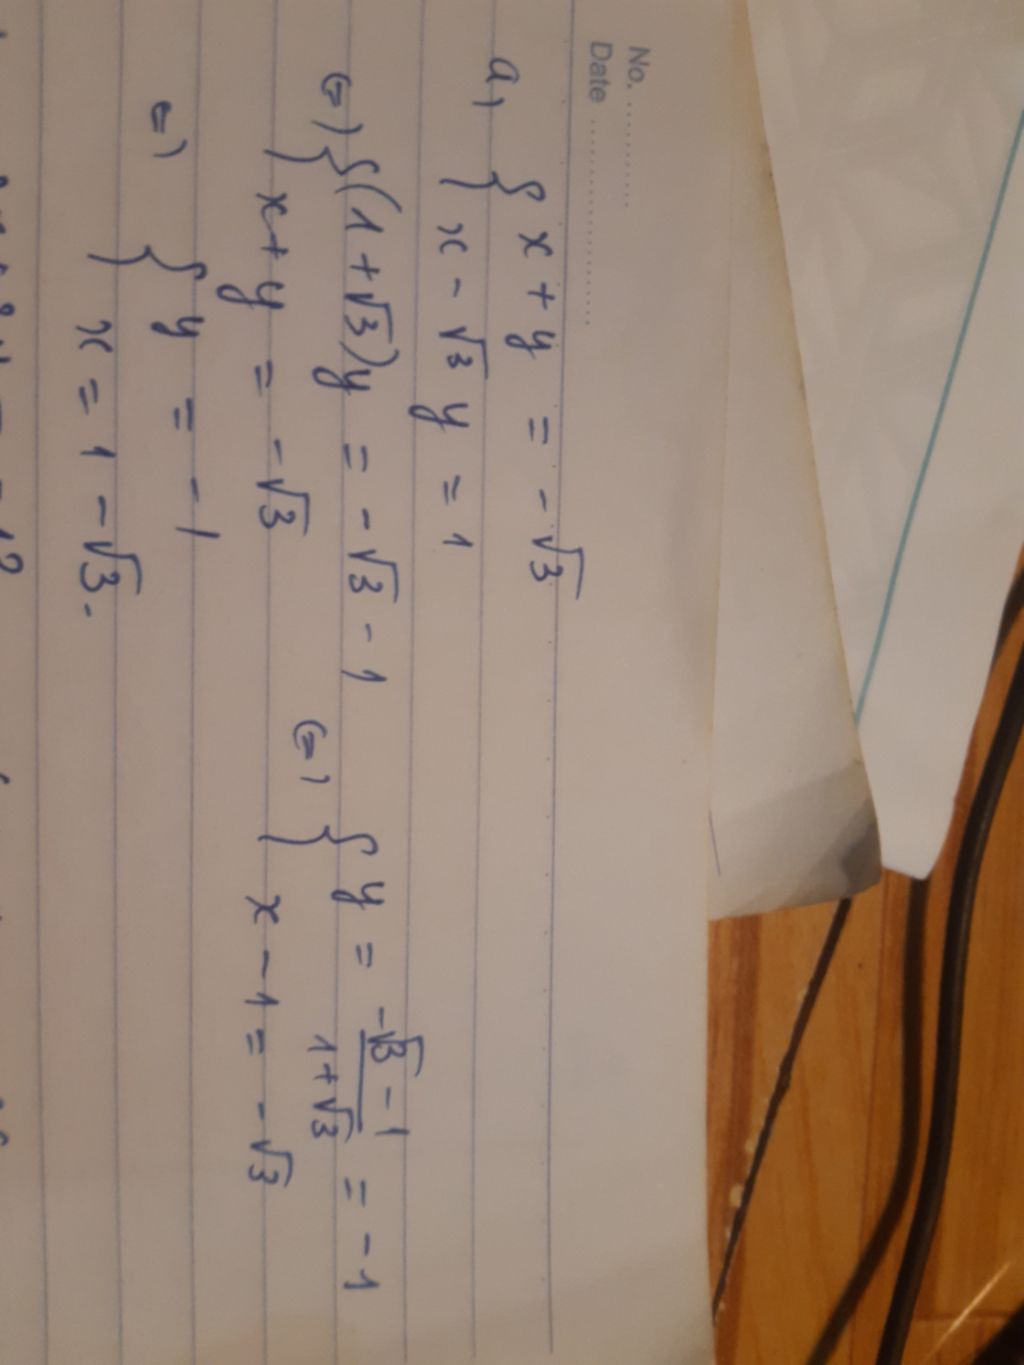 No. ...........
Date ........................
a, { x + y = -√3
x - √3 y = 1
(=) { (1 + √3)y = -√3 - 1
x + y = -√3
(=) { y = (-√3 - 1)/(1 + √3) = -1
x - 1 = -√3
(=) { y = -1
x = 1 - √3.